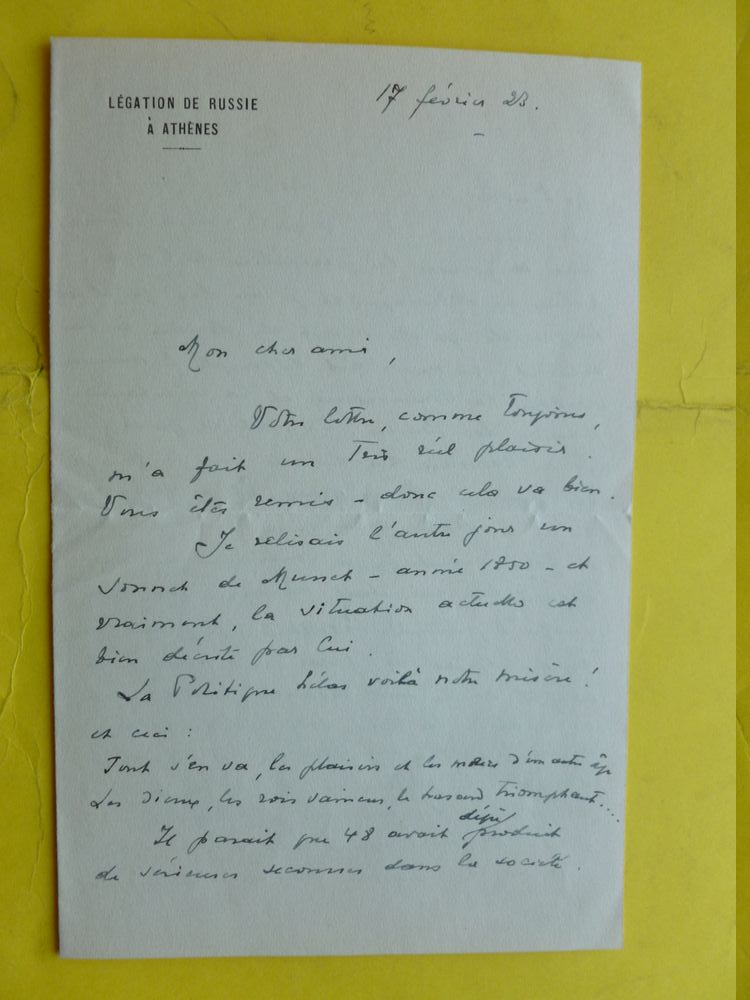 LÉGATION DE RUSSIE
À ATHÈNES
17 février 23.
Mon cher ami,
Votre lettre, comme toujours,
m'a fait un très réel plaisir.
Vous êtes remis – donc cela va bien.
Je relisais l'autre jour un
sonnet de Musset – année 1850 – et
vraiment, la situation actuelle est
bien décrite par lui.
La Politique hélas voilà notre misère!
et ceci :
Tout s'en va, les plaisirs et les mœurs d'un autre âge
Les dieux, les rois vaincus, le hasard triomphant....
Il parait que 48 avait déjà produit
de sérieuses secousses dans la société.